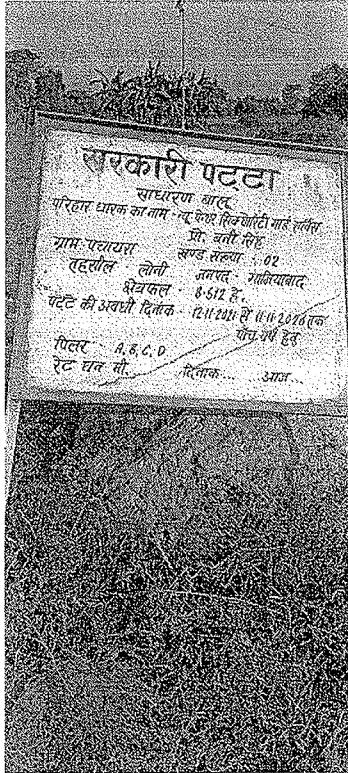 सरकारी पट्टा
साधारण बालू
परिहार धारक का नाम - न्यू फौजी सिक्योरिटी गार्ड सर्विस
प्रो. बनी सिंह
ग्राम पचायरा खण्ड संख्या - 02
तहसील लोनी जनपद - गाजियाबाद
क्षेत्रफल - 8.512 है.
पटटे की अवधी दिनांक - 12.11.2021 से 11.11.2026 तक
पांच वर्ष हेतु
पिलर - A, B, C, D
रेट घन मी. दिनांक... आज...